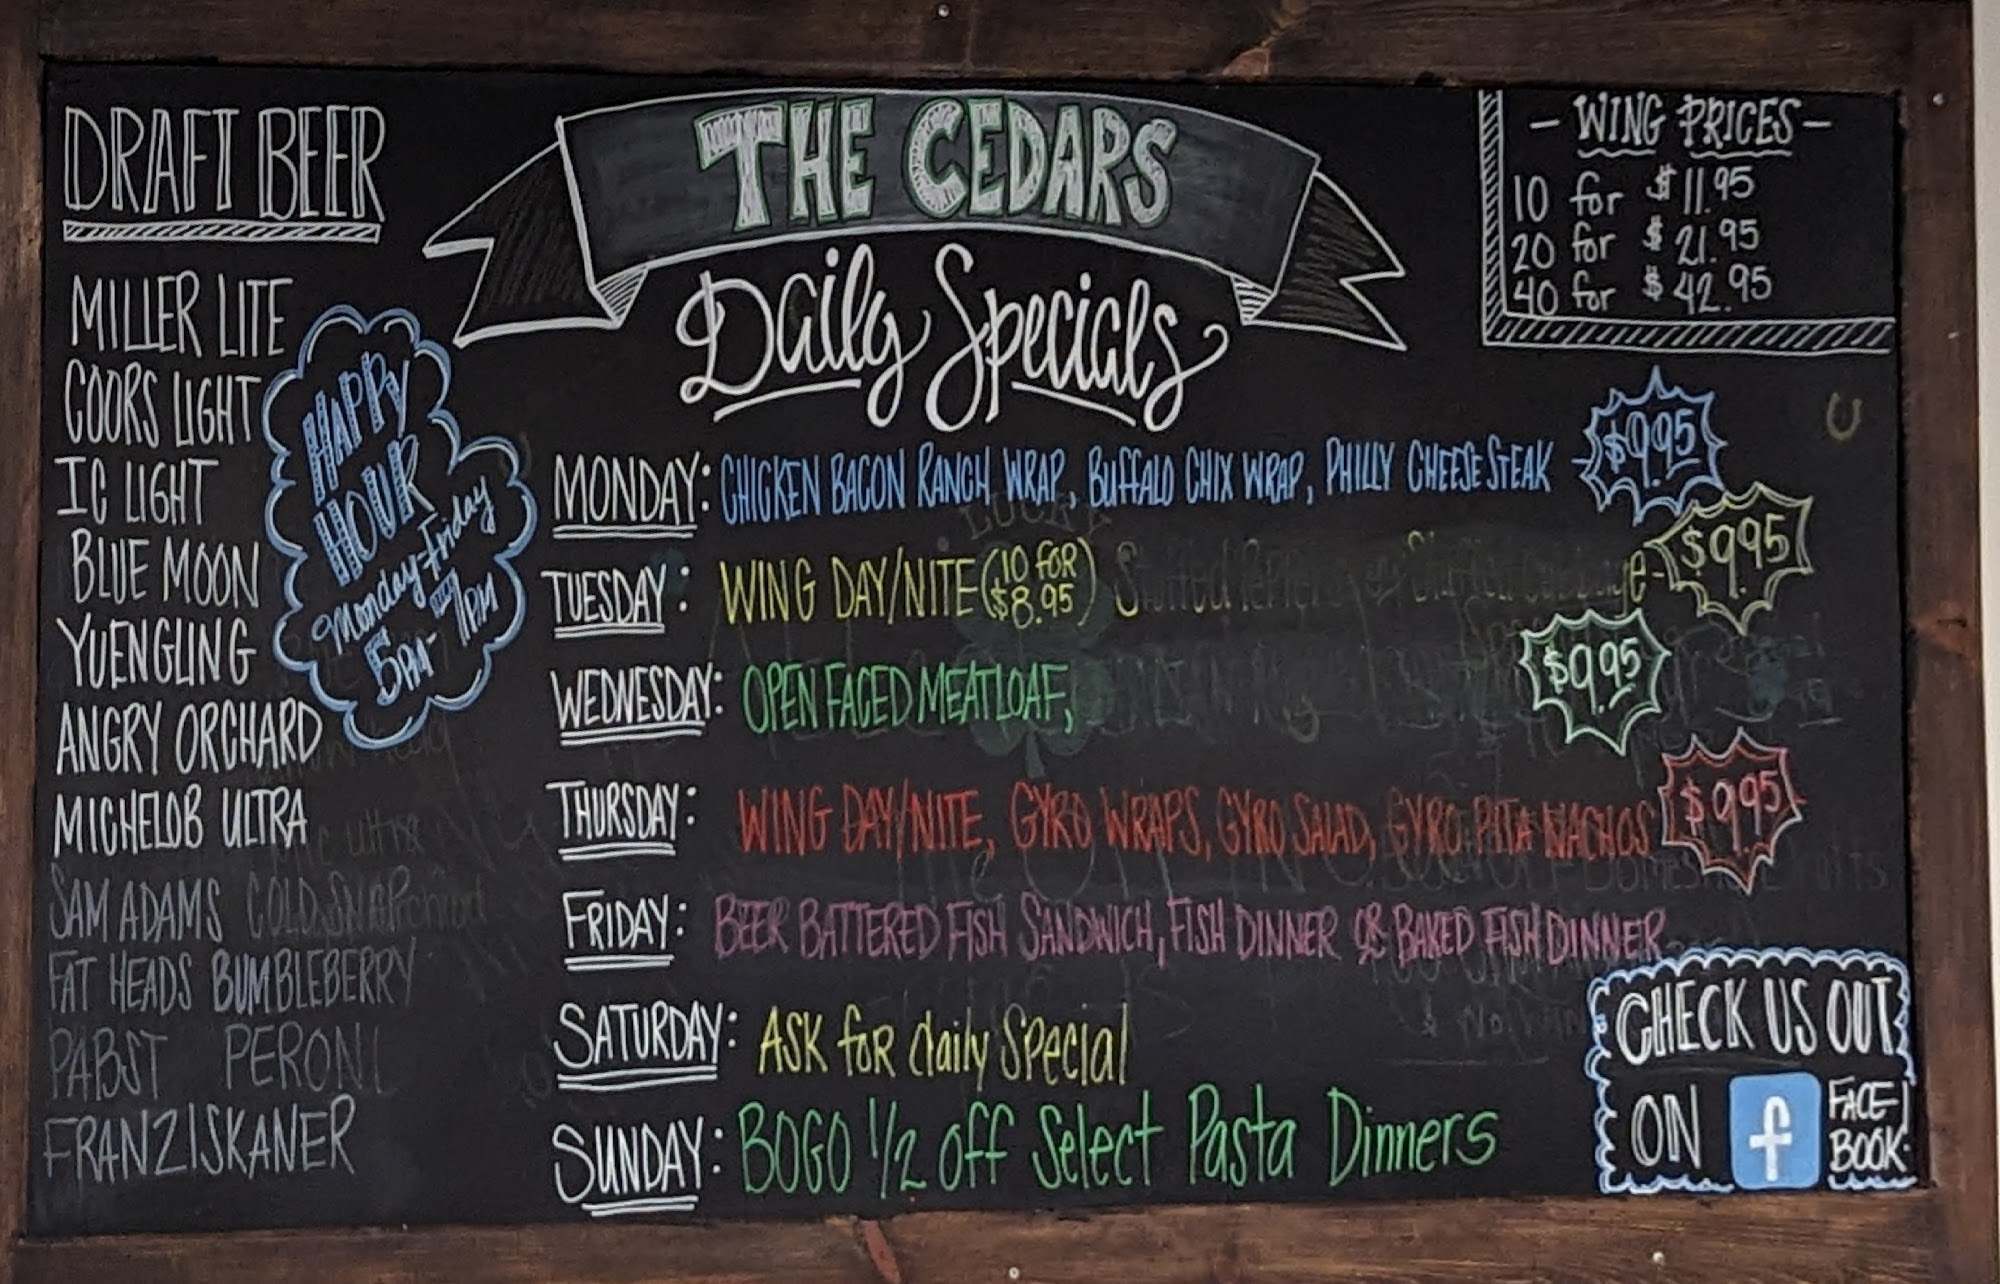 DRAFT BEER
MILLER LITE
COORS LIGHT
IC LIGHT
BLUE MOON
YUENGLING
ANGRY ORCHARD
MICHELOB ULTRA
SAM ADAMS COLD SNAP
FAT HEADS BUMBLEBERRY
PABST PERONI
FRANZISKANER
HAPPY
HOUR
Monday-Friday
5PM-7PM
THE CEDARS
Daily Specials
MONDAY: CHICKEN BACON RANCH WRAP, BUFFALO CHIX WRAP, PHILLY CHEESE STEAK $9.95
TUESDAY: WING DAY/NITE (10 FOR $8.95) $9.95
WEDNESDAY: OPEN FACED MEATLOAF, $9.95
THURSDAY: WING DAY/NITE, GYRO WRAPS, GYRO SALAD, GYRO PITA NACHOS $9.95
FRIDAY: BEER BATTERED FISH SANDWICH, FISH DINNER OR BAKED FISH DINNER
SATURDAY: ASK for daily Special
SUNDAY: BOGO 1/2 off Select Pasta Dinners
- WING PRICES -
10 for $11.95
20 for $21.95
40 for $42.95
CHECK US OUT
ON f FACE-
BOOK!